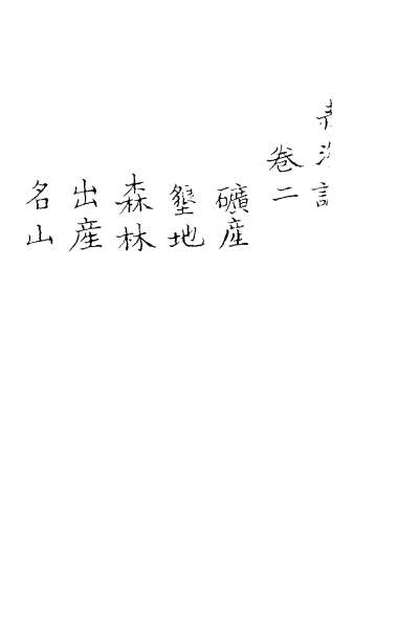 卷二
礦産
墾地
森林
出産
名山